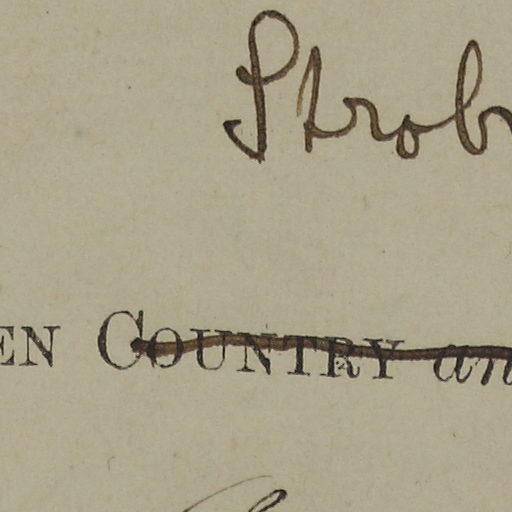 Strob
EN COUNTRY an